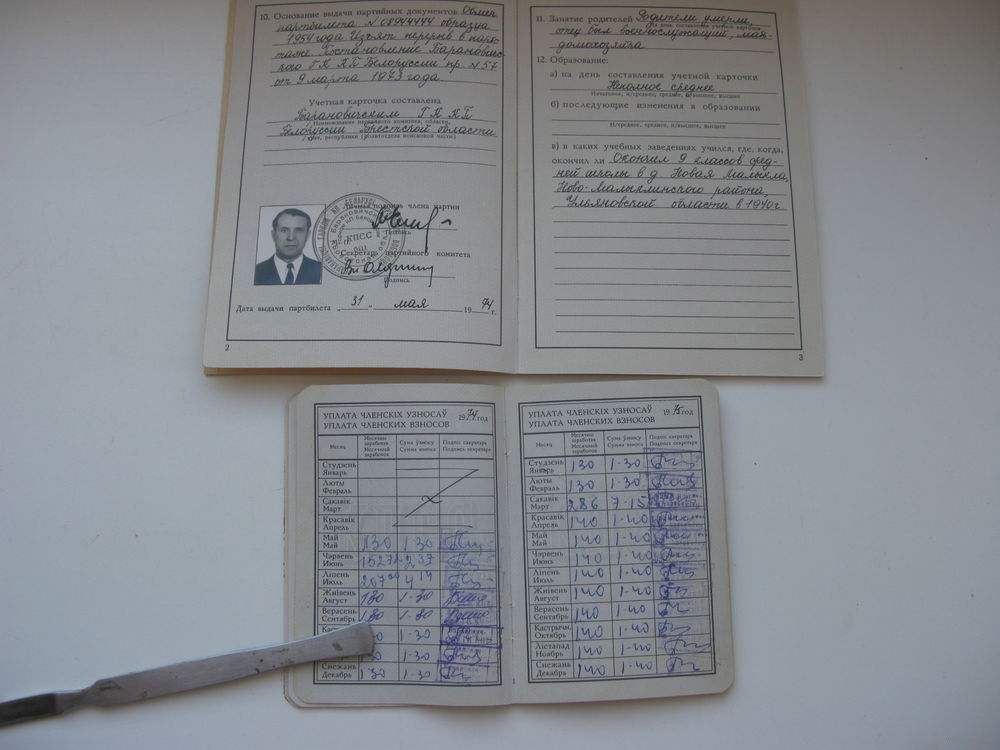 10. Основание выдачи партийных документов Обмен
партбилета №08944444 образца
1954 года. Изъят перерыв в парт-
стаже. Постановление Барановичс-
кого ГК КП Белоруссии пр. №57
от 9 марта 1973 года.
Учетная карточка составлена
Барановичским ГК КП
Наименование партийного комитета, области,
Белоруссии Брестской области
края, республики (политотдела войсковой части)
Личная подпись члена партии
Подпись
КПСС
Секретарь партийного комитета
Подпись
Дата выдачи партбилета „31“ мая 1974 г.
2
11. Занятие родителей Родители умерли,
На день составления учетной карточки
отец был военнослужащий, мать
домохозяйка
12. Образование:
а) на день составления учетной карточки
Неполное среднее
Начальное, н/среднее, среднее, н/высшее, высшее
б) последующие изменения в образовании
Н/среднее, среднее, н/высшее, высшее
в) в каких учебных заведениях учился, где, когда,
окончил ли Окончил 9 классов сред-
ней школы в д. Новая Малыкла,
Ново-Малыклинского района,
Ульяновской области в 1940 г
3
УПЛАТА ЧЛЕНСКІХ УЗНОСАЎ
УПЛАТА ЧЛЕНСКИХ ВЗНОСОВ
1974 год
Месяц
Месячны заработак
Месячный заработок
Сума ўзносу
Сумма взноса
Подпіс сакратара
Подпись секретаря
Студзень
Январь
Люты
Февраль
Сакавік
Март
Красавік
Апрель
Май
Май 130 1-30
Чэрвень
Июнь
Ліпень
Июль
Жнівень
Август 130 1-30
Верасень
Сентябрь 130 1-30
1-30
1-30
Снежань
Декабрь 130 1-30
УПЛАТА ЧЛЕНСКІХ УЗНОСАЎ
УПЛАТА ЧЛЕНСКИХ ВЗНОСОВ
1975 год
Месяц
Месячны заработак
Месячный заработок
Сума ўзносу
Сумма взноса
Подпіс сакратара
Подпись секретаря
Студзень
Январь 130 1-30
Люты
Февраль 130 1-30
Сакавік
Март 286 7-15
Красавік
Апрель 140 1-40
Май
Май 140 1-40
Чэрвень
Июнь 140 1-40
Ліпень
Июль 140 1-40
Жнівень
Август 140 1-40
Верасень
Сентябрь 140 1-40
Кастрычн.
Октябрь 140 1-40
Лістапад
Ноябрь 140 1-40
Снежань
Декабрь 140 1-40